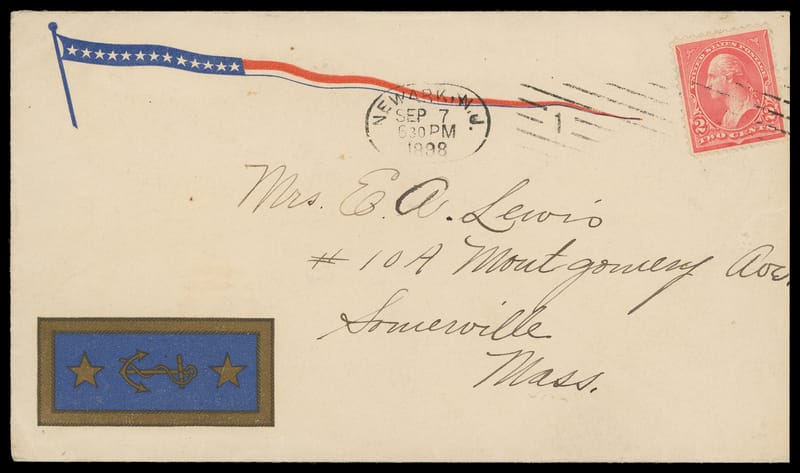 NEWARK, N.J.
SEP 7
6 30 PM
1898
1
UNITED STATES POSTAGE
2 2
TWO CENTS
Mrs. E. A. Lewis
# 10 A Montgomery Ave.
Somerville
Mass.